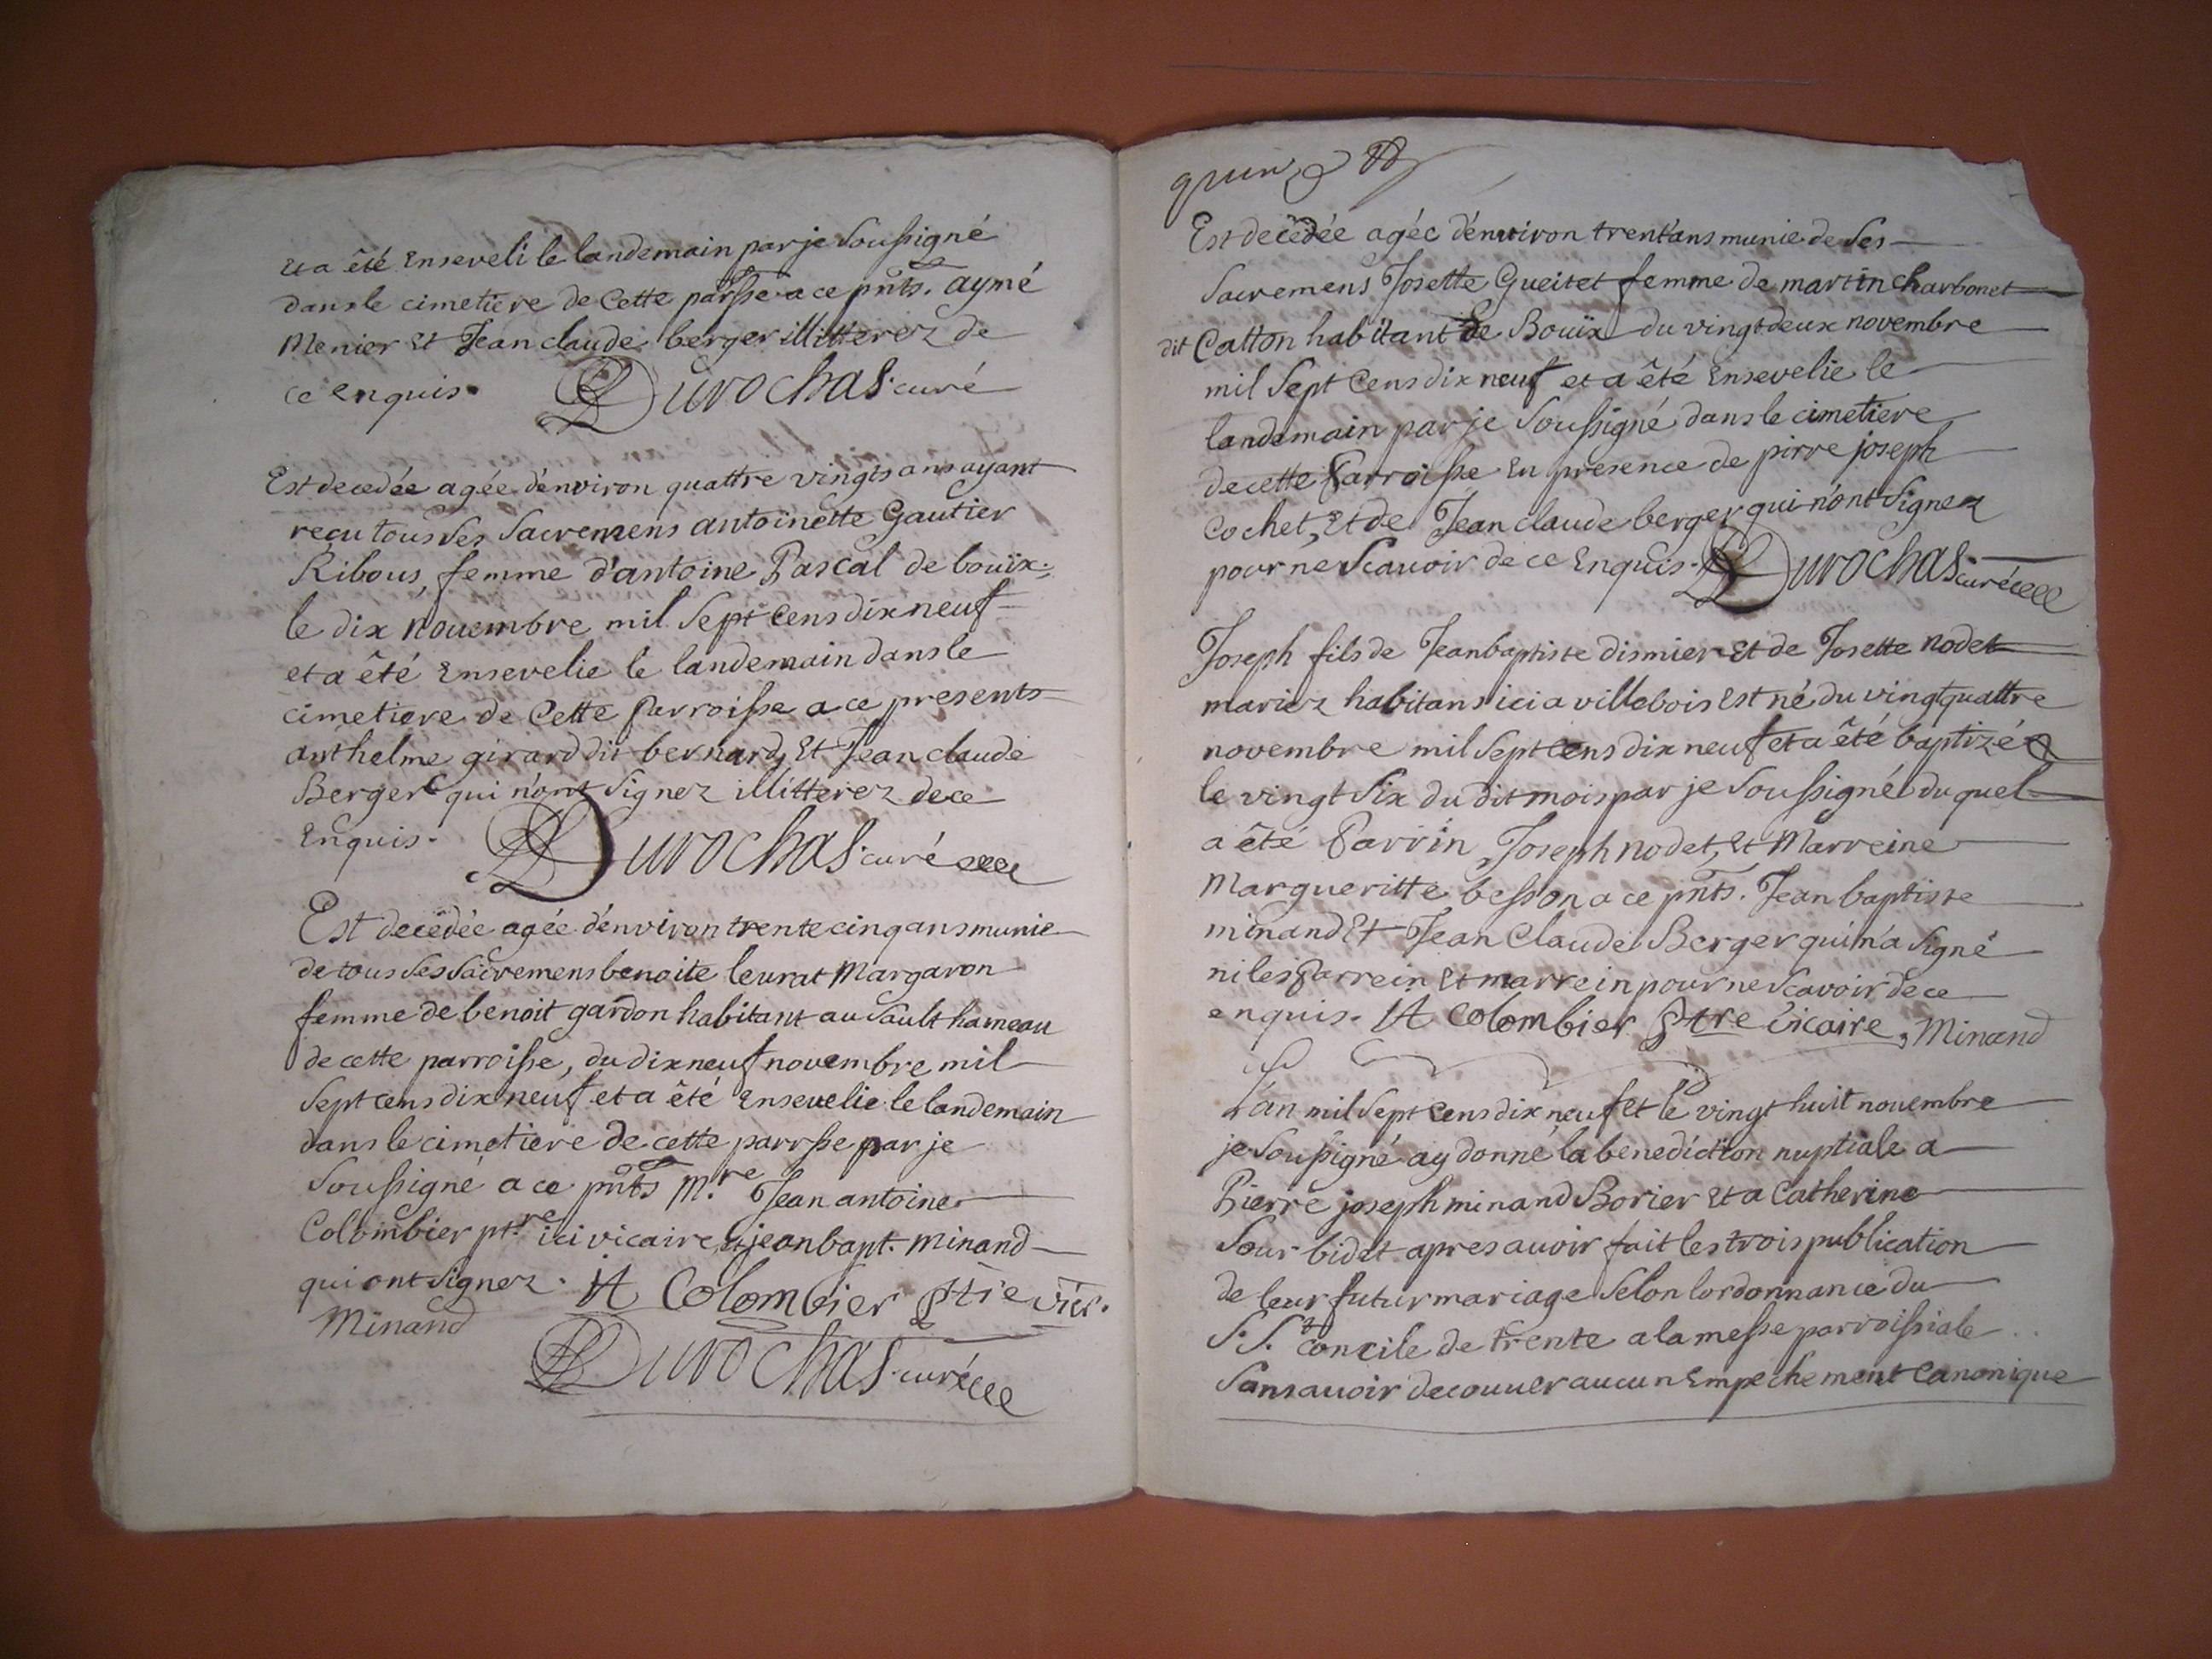 et a êté enseveli le landemain par je soussigné
dans le cimetiere de cette parsse a ce pnts. aymé
Menier et Jean claude berger illitterez de
ce enquis. Durochas curé
Est decedée agée d'environ quattre vingts ans ayant
recu tous ses sacremens antoinette Gautier
Ribous, femme d'antoine Pascal de bouïx.
le dix novembre mil sept cens dix neuf
et a êté ensevelie le landemain dans le
cimetiere de cette parroisse a ce presents
anthelme girard dit bernard, et Jean claude
Berger qui n'ont signez illitterez de ce
enquis. Durochas curé
Est decedée agée d'environ trente cinq ans munie
de tous ses sacremens benoite leurat Margaron
femme de benoit gardon habitant au sault hameau
de cette parroisse, du dix neuf novembre mil
sept cens dix neuf et a êté ensevelie le landemain
dans le cimetiere de cette parrsse par je
soussigné a ce pnts Mre Jean antoine
Colombier ptre ici vicaire, et jean bapt. minand
qui ont signez. JA Colombier ptre vic.
Minand
Durochas curé
quinze
Est decedée agée d'environ trent'ans munie de ses
sacremens Josette Gueitet femme de martin charbonet
dit Catton habitant de Bouïx du vingt deux novembre
mil sept cens dix neuf et a êté ensevelie le
landemain par je soussigné dans le cimetiere
de cette Parroisse en presence de pirre joseph
cochet, et de Jean claude berger qui n'ont signez
pour ne scavoir de ce enquis. Durochas curé
Joseph fils de Jean baptiste dismier et de Josette nodet
mariez habitans ici a villebois est né du vingt quattre
novembre mil sept cens dix neuf et a êté baptizé
le vingt six du dit mois par je soussigné du quel
a êté Parrin Joseph nodet, et Marreine
Margueritte besson a ce pnts. Jean baptiste
minand et Jean Claude Berger qui n'a signé
ni les Parrein et marrein pour ne scavoir de ce
enquis. JA Colombier ptre vicaire, Minand
L'an mil sept cens dix neuf et le vingt huit novembre
je soussigné ay donné la benediction nuptiale a
Pierre joseph minand Borier et a Catherine
sour bidet apres avoir fait les trois publication
de leur futur mariage selon lordonnance du
S. St concile de trente a la messe parroissiale
sans avoir decouver aucun empechement canonique